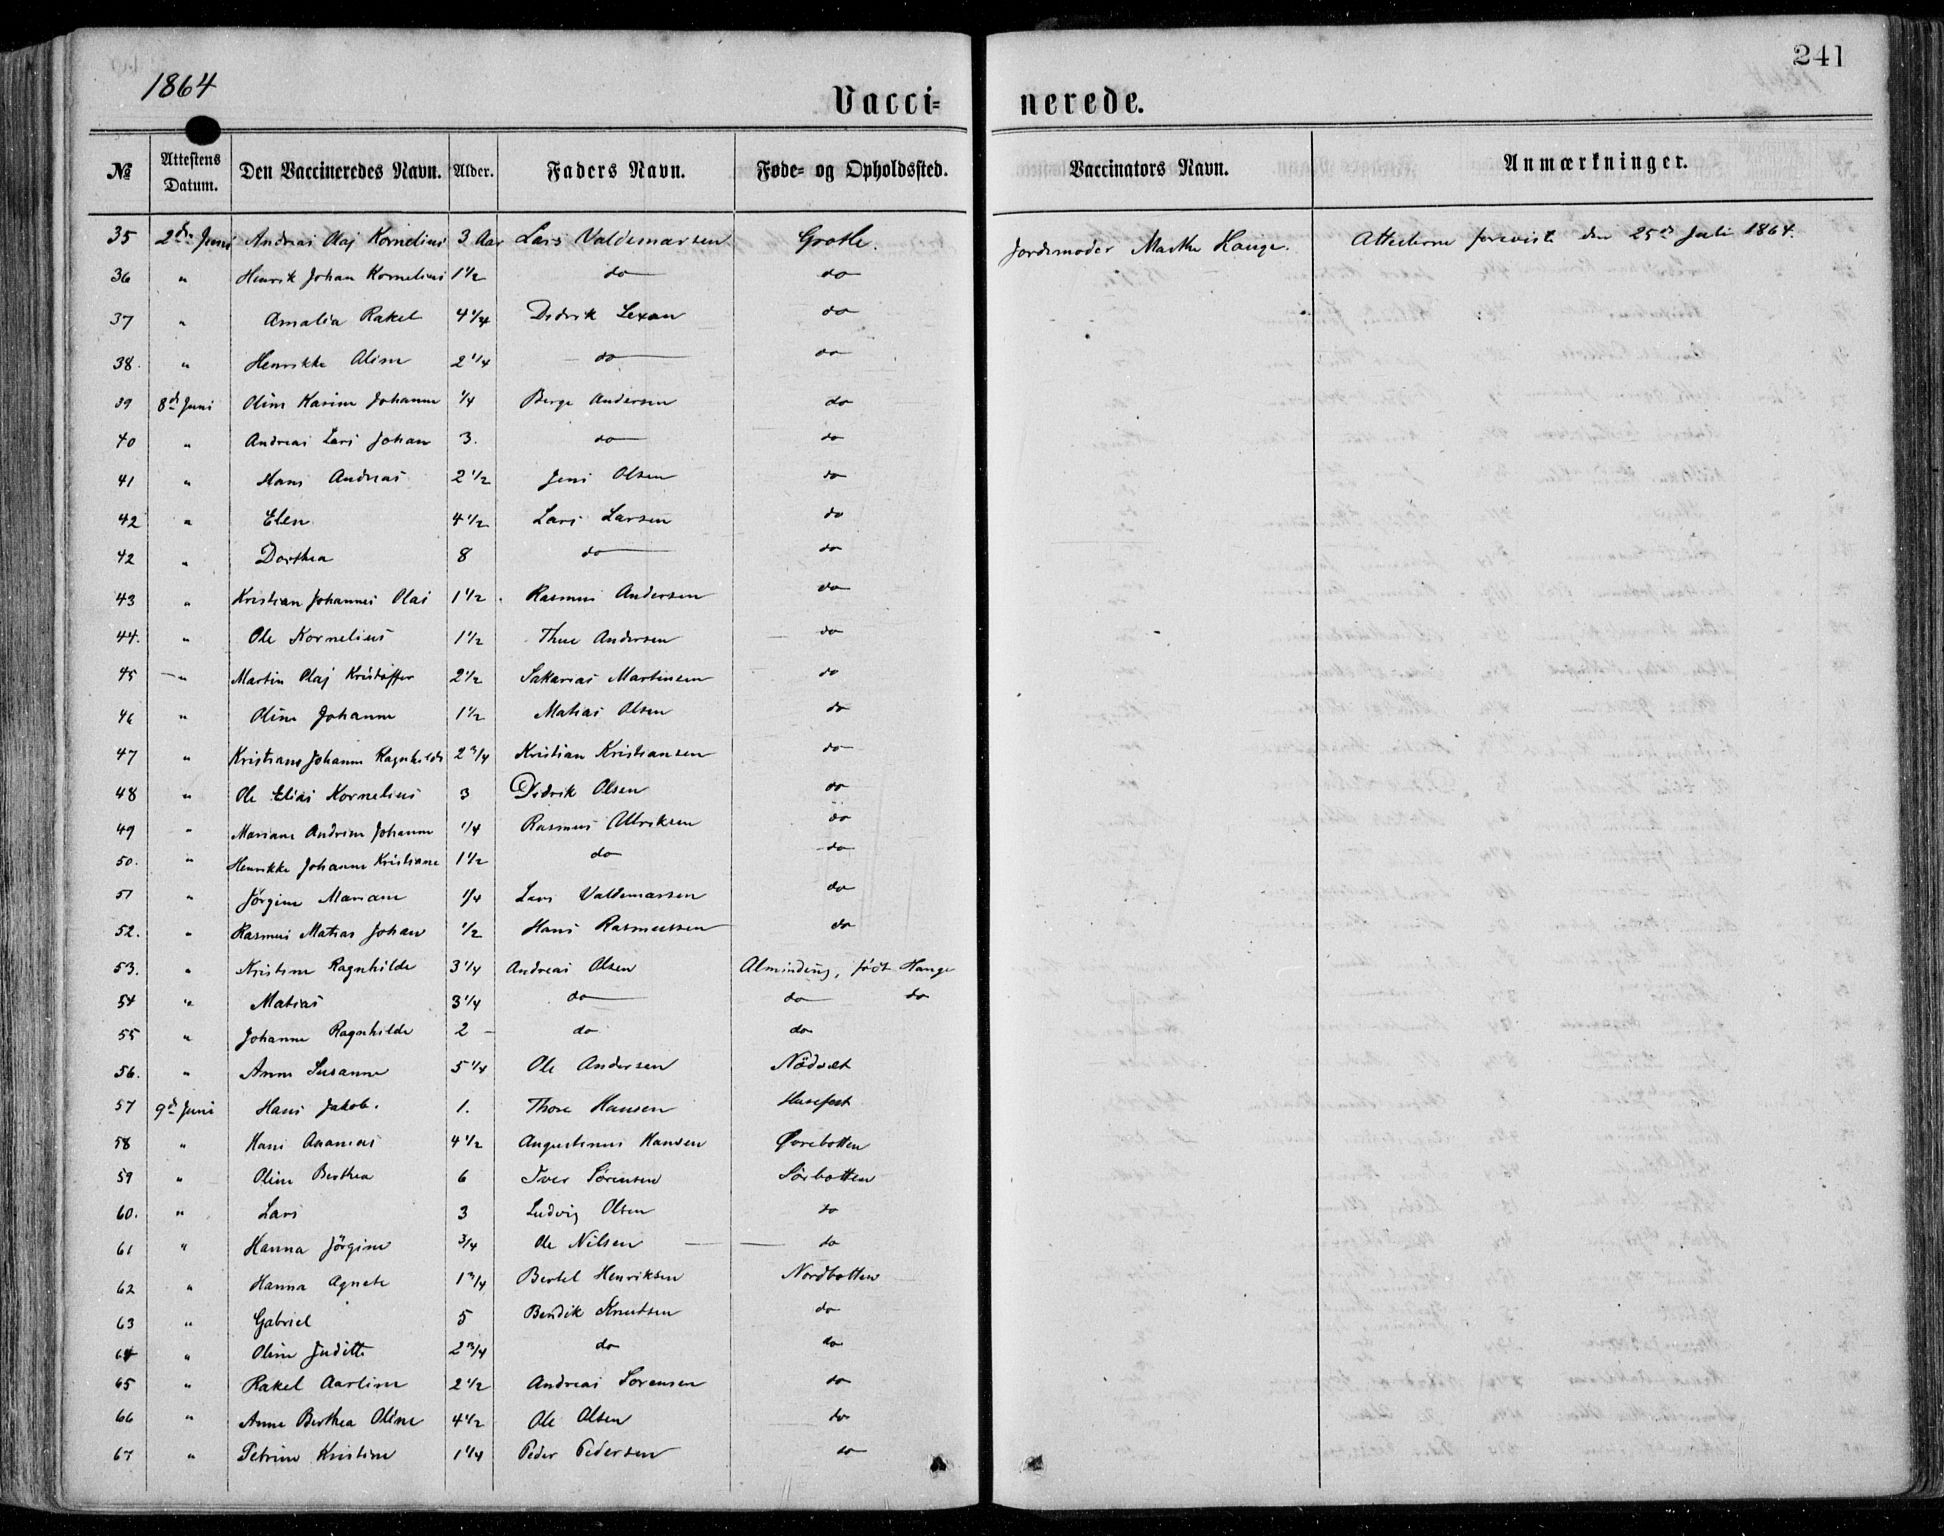 1864
241
Vacci=
nerede.
№ Attestens Datum. Den Vaccineredes Navn. Alder. Faders Navn. Føde- og Opholdssted. Vaccinators Navn. Anmærkninger.
35 2den Juni Andreas Olaj Kornelius 3 Aar Lars Valdemarsen Grotle. Jordemoder Marthe Hauge. Attesterne foreviste den 25de Juli 1864.
36 " Henrik Johan Kornelius 1 1/2 do do
37 " Amalia Rakel 4 1/4 Didrik Lexau do
38. " Henrikke Oline 2 1/4 do do
39 8de Juni Oline Karine Johanne 1/4 Berge Andersen do
40 " Andreas Lars Johan 3. do do
41 " Hans Andreas 2 1/2 Jens Olsen do
42 " Elen 4 1/2 Lars Larsen do
42 " Dorthea 8 do do
43 " Kristian Johannes Olai 1 1/2. Rasmus Andersen do
44. " Ole Kornelius 1 1/2 Thue Andersen do
45 " Martin Olaj Kristoffer 2 1/2 Sakarias Martinsen do
46 " Oline Johanne 1 1/2 Matias Olsen do
47 " Kristiane Johanne Ragnhilde 2 3/4 Kristian Kristiansen do
48 " Ole Elias Kornelius 3 Didrik Olsen do
49 " Mariane Andrine Johanne 1/4 Rasmus Albriksen do
50. " Henrikke Johanne Kristiane 1 1/2 do do
51 " Jörgine Mariane 1/4 Lars Valdemarsen do
52. " Rasmus Matias Johan 1/2 Hans Rasmussen do
53. " Kristine Ragnhilde 3 1/4 Andreas Olsen Alminding, født Hauge
54 " Matias 3 1/4 do do do
55 " Johanne Ragnhilde 2 - do do
56. " Anne Susanne 5 1/4 Ole Andersen Nödset
57 9de Juni Hans Jakob. 1. Thore Hansen Husefest
58 " Hans Ananias 4 1/2 Augustinus Hansen Øvrebotten
59 " Oline Berthea 6 Iver Sörensen Sörbotten
60. " Lars 3 Ludvig Olsen do
61 " Hanna Jörgine 3/4 Ole Nilsen do
62 " Hanna Agnete 1 3/4 Bertel Henriksen Nordbotten
63 " Gabriel 5 Bendik Knutsen do
64 " Oline Juditte 2 3/4 do do
65 " Rakel Aarline 2 1/2 Andreas Sorensen do
66 " Anne Berthea Oline 4 1/2 Ole Olsen do
67 " Petrine Kristine 1 1/4 Peder Pedersen do